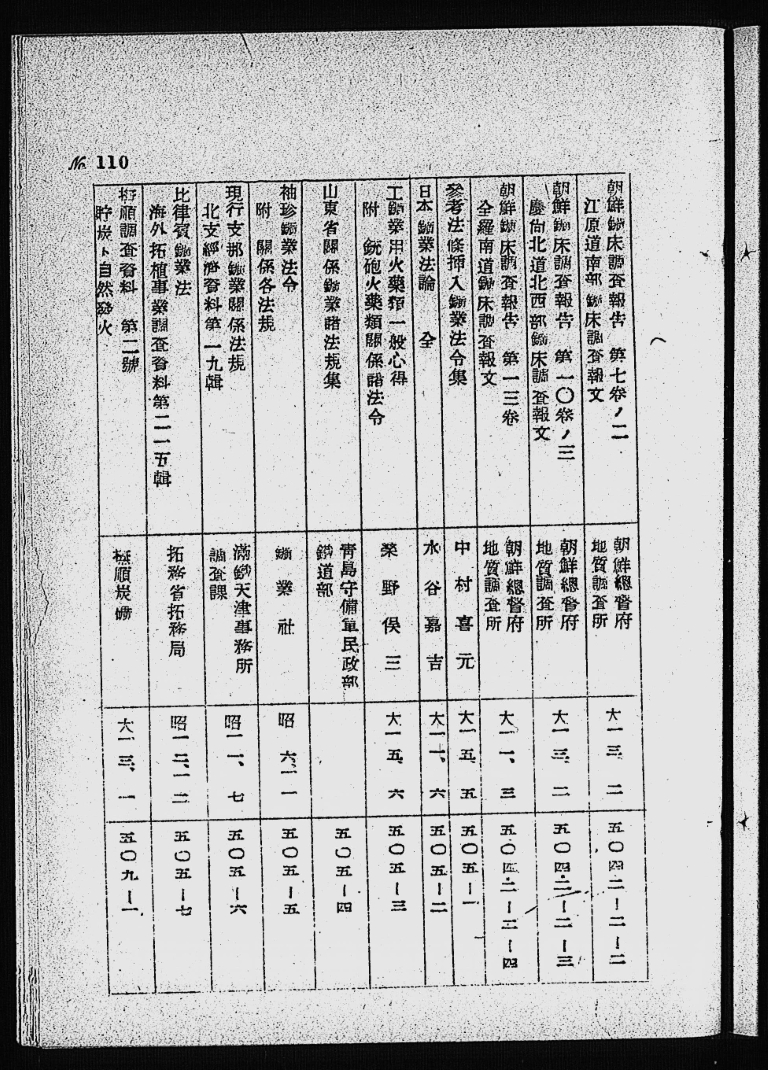 No. 110
朝鮮鑛床調査報告 第七卷ノ二
江原道南部鑛床調査報文
朝鮮總督府
地質調査所
大一三、二
五〇四・二ー二ー二
朝鮮鑛床調査報告 第一〇卷ノ三
慶尙北道北西部鑛床調査報文
朝鮮總督府
地質調査所
大一三、二
五〇四・二ー二ー三
朝鮮鑛床調査報告 第一三卷
全羅南道鑛床調査報文
朝鮮總督府
地質調査所
大一一、三
五〇四・二ー二ー四
參考法條挿入鑛業法令集
中村喜元
大一五、五
五〇五ー一
日本鑛業法論 全
水谷嘉吉
大一一、六
五〇五ー二
工鑛業用火藥類一般心得
附 銃砲火藥類關係諸法令
桒野俁三
大一五、六
五〇五ー三
山東省關係鑛業諸法規集
靑島守備軍民政部
鐵道部
五〇五ー四
袖珍鑛業法令
附 關係各法規
鑛業社
昭 六、一一
五〇五ー五
現行支那鑛業關係法規
北支經濟資料第一九輯
滿鐵天津事務所
調査課
昭一一、七
五〇五ー六
比律賓鑛業法
海外拓植事業調査資料第二一五輯
拓務省拓務局
昭一二、一二
五〇五ー七
撫順調査資料 第二號
貯炭ト自然發火
撫順炭礦
大一三、一
五〇九ー一